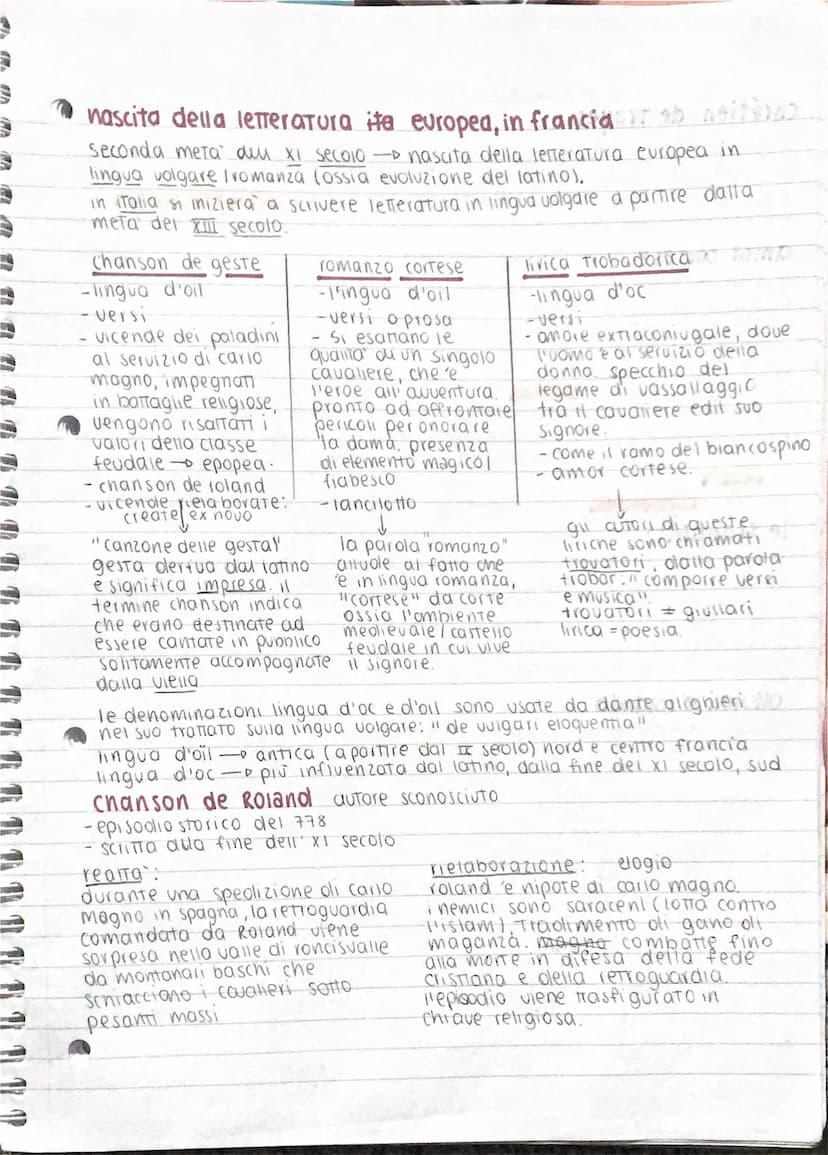 nascita della letteratura ita europea, in francia
seconda metà dell XI secolo → nascita della letteratura europea in
lingua volgare / romanza (ossia evoluzione del latino).
in italia si inizierà a scrivere letteratura in lingua volgare a partire dalla
metà del XIII secolo.
chanson de geste
-lingua d'oil
- versi
- vicende dei paladini
al servizio di carlo
magno, impegnati
in battaglie religiose,
vengono risaltati i
valori della classe
feudale → epopea.
- chanson de roland
- vicende rielaborate:
create ex novo
"canzone delle gesta"
gesta deriva dal latino
e significa impresa. il
termine chanson indica
che erano destinate ad
essere cantate in pubblico
solitamente accompagnate
dalla viella
romanzo cortese
-lingua d'oil
-versi o prosa
- si esaltano le
qualità di un singolo
cavaliere, che è
l'eroe all'avventura.
pronto ad affrontare
pericoli per onorare
la dama. presenza
di elemento magico/
fiabesco
- lancilotto
la parola "romanzo"
allude al fatto che
è in lingua romanza,
"cortese" da corte
ossia l'ambiente
medievale / castello
feudale in cui vive
il signore.
lirica trobadorica
-lingua d'oc
-versi
- amore extraconiugale, dove
l'uomo è al servizio della
donna. specchio del
legame di vassallaggio
tra il cavaliere ed il suo
signore.
- come il ramo del biancospino
- amor cortese.
gli autori di queste
liriche sono chiamati
trovatori, dalla parola
trobar: "comporre versi
e musica".
trovatori ≠ giullari
lirica = poesia.
le denominazioni lingua d'oc e d'oil sono usate da dante alighieri
nel suo trattato sulla lingua volgare: "de vulgari eloquentia"
lingua d'oïl → antica (a partire dal IX secolo) nord e centro francia
lingua d'oc → più influenzata dal latino, dalla fine del XI secolo, sud
chanson de Roland autore sconosciuto
-episodio storico del 778
- scritta alla fine dell' XI secolo
realtà:
durante una spedizione di carlo
magno in spagna, la retroguardia
comandata da Roland viene
sorpresa nella valle di roncisvalle
da montanari baschi che
schiacciono i cavalieri sotto
pesanti massi
rielaborazione: elogio
roland è nipote di carlo magno.
i nemici sono saraceni (lotta contro
l'islam), tradimento di gano di
maganza. magno combatte fino
alla morte in difesa della fede
cristiana e della retroguardia.
l'episodio viene trasfigurato in
chiave religiosa.